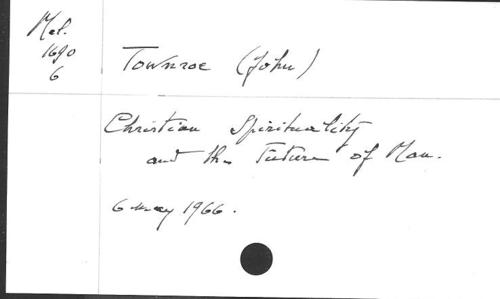 Mel.
1690
6
Townroe (John)
Christian Spirituality
and the Future of Man.
6 may 1966.